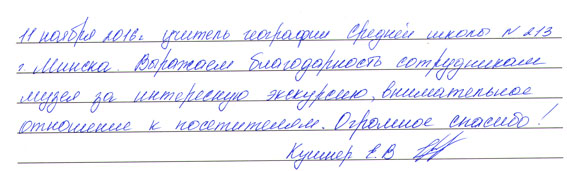 11 ноября 2016г учитель географии Средней школы N 213
г. Минска. Выражаем благодарность сотрудникам
музея за интересную экскурсию, внимательное
отношение к посетителям. Огромное спасибо!
Кушнер Е.В